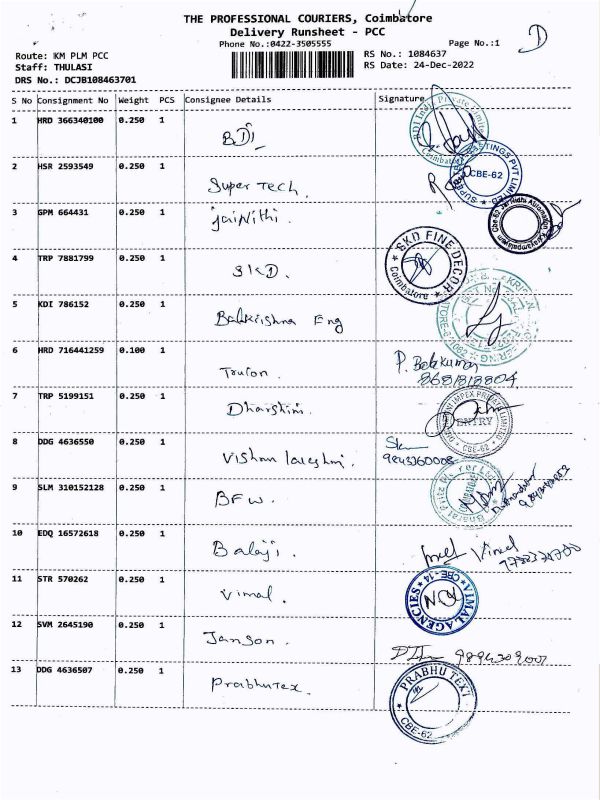 THE PROFESSIONAL COURIERS, Coimbatore
Delivery Runsheet - PCC
Phone No.:0422-3505555
Page No.:1
D
Route: KM PLM PCC
RS No.: 1084637
Staff: THULASI
RS Date: 24-Dec-2022
DRS No.: DCJB108463701
S No Consignment No Weight PCS Consignee Details Signature
1 HRD 366340100 0.250 1
BDI
2 HSR 2593549 0.250 1
Super Tech.
CBE-62
3 GPM 664431 0.250 1
jaiNithi.
4 TRP 7881799 0.250 1
SKD.
SKD FINE DECOR
Coimbatore
5 KDI 786152 0.250 1
Balakrishna Eng
6 HRD 716441259 0.100 1
P. Balakumar
8681818804
7 TRP 5199151 0.250 1
Dharshini.
ENTRY
CBE-62
8 DDG 4636550 0.250 1
9 SLM 310152128 0.250 1
BFW.
10 EDQ 16572618 0.250 1
Balaji.
Vimel
11 STR 570262 0.250 1
Vimal.
VIMAL AGENCIES
CBE-14
12 SVM 2645190 0.250 1
Janson.
13 DDG 4636507 0.250 1
Prabhutex.
PRABHU TEXT
CBE-62